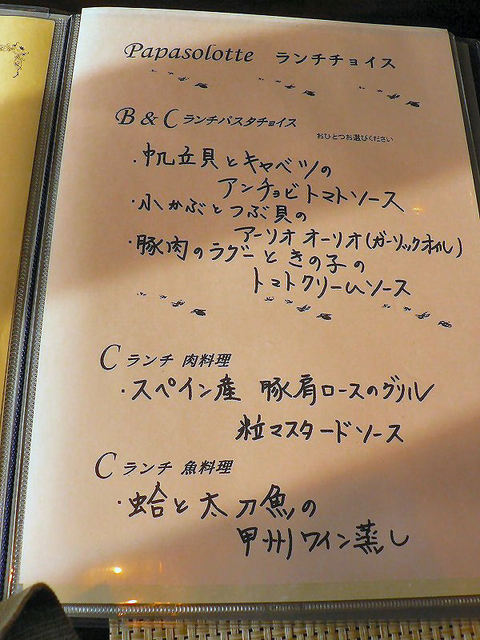 Papasolotte ランチチョイス
B & C ランチパスタチョイス
おひとつお選びください
・帆立貝とキャベツの
アンチョビトマトソース
・小かぶとつぶ貝の
アーリオオーリオ(ガーリックオイル)
・豚肉のラグーときの子の
トマトクリームソース
C ランチ 肉料理
・スペイン産 豚肩ロースのグリル
粒マスタードソース
C ランチ 魚料理
・蛤と太刀魚の
甲州ワイン蒸し